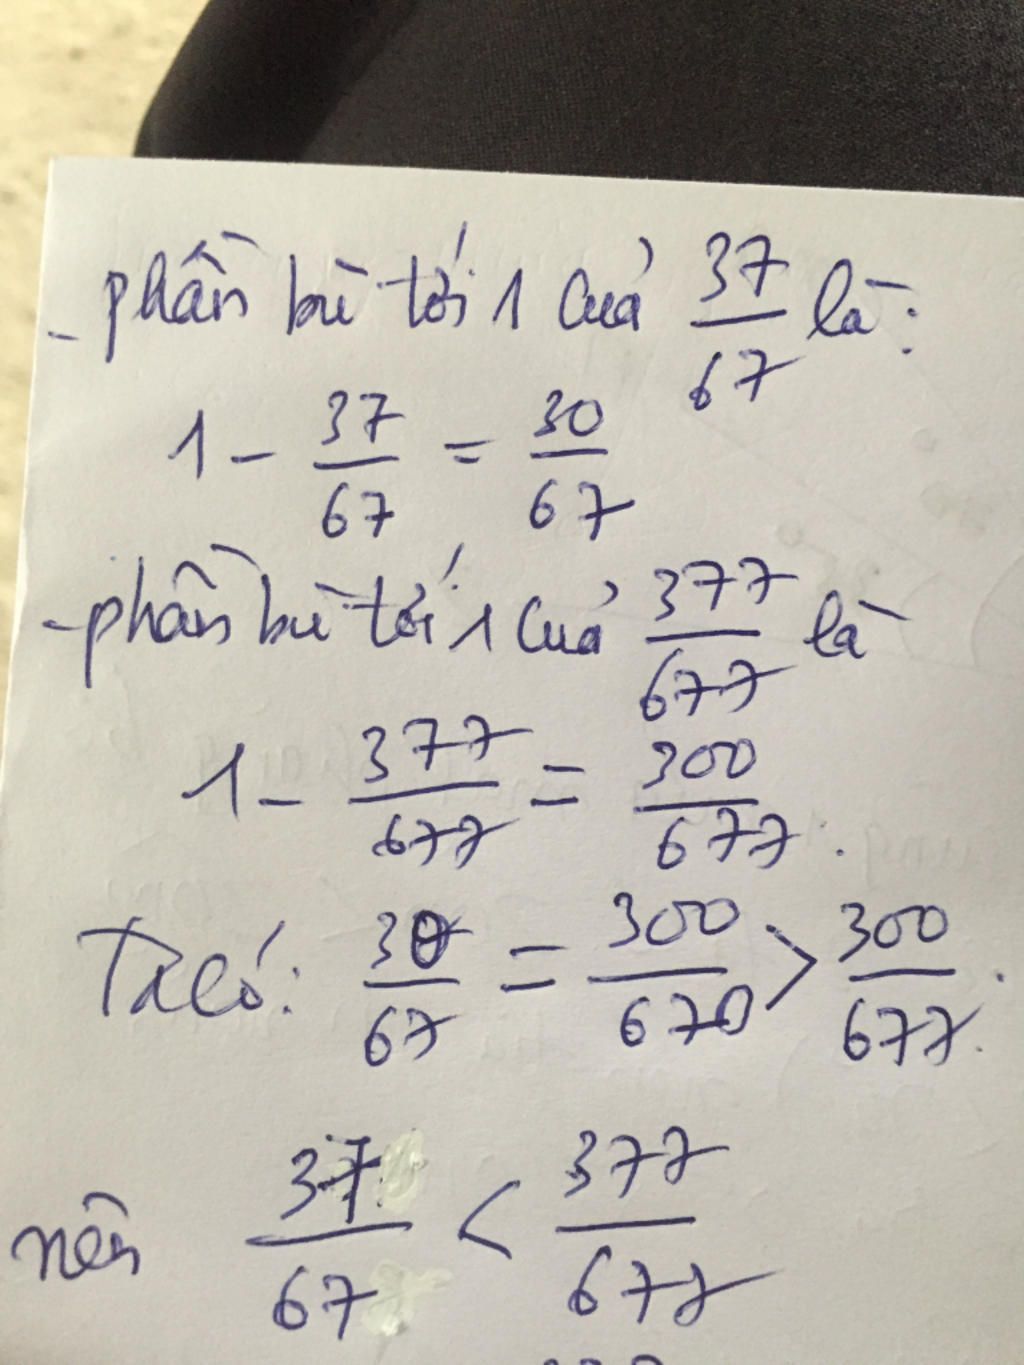 - phần bù tới 1 của 37/67 là:
1 - 37/67 = 30/67
- phần bù tới 1 của 377/677 là
1 - 377/677 = 300/677.
Ta có: 30/67 = 300/670 > 300/677.
nên 37/67 < 377/677